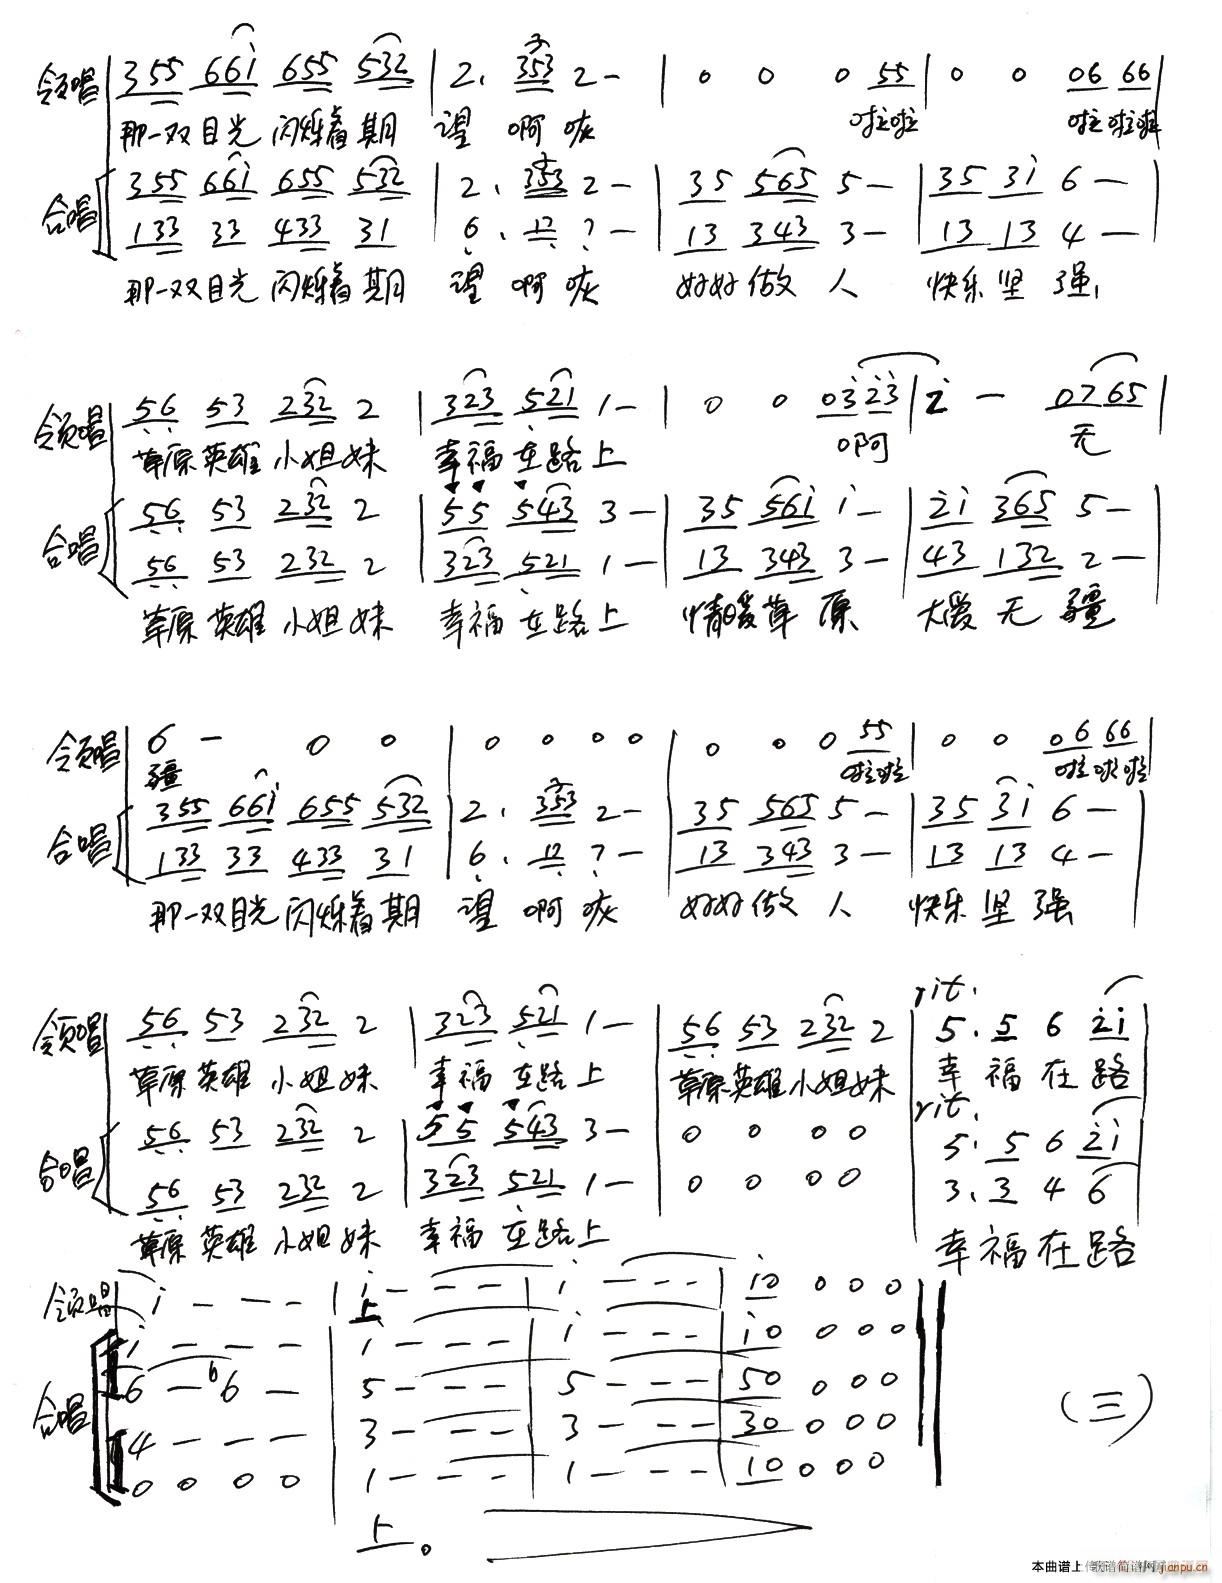 领唱 | 3 5 5 6 6 i 6 5 5 5 3 2 | 2 . 3 5 3 2 — | 0 0 0 5 5 | 0 0 0 6 6 6 |
那一双目光 闪烁着期 望 啊 咴 啦啦 啦啦啦
合唱 3 5 5 6 6 i 6 5 5 5 3 2 | 2 . 3 5 3 2 — | 3 5 5 6 5 5 — | 3 5 3 i 6 — |
1 3 3 3 3 4 3 3 3 1 | 6 . 1 2 7 — | 1 3 3 4 3 3 — | 1 3 1 3 4 — |
那一双目光 闪烁着期 望 啊 咴 好好做 人 快乐坚 强,
领唱 | 5 6 5 3 2 3 2 2 | 3 2 3 5 2 1 1 — | 0 0 0 3 2 3 | 2 — 0 7 6 5 |
草原英雄 小姐妹 幸福在路上 啊 无
合唱 5 6 5 3 2 3 2 2 | 5 5 5 4 3 3 — | 3 5 5 6 i i — | 2 i 3 6 5 5 — |
5 6 5 3 2 3 2 2 | 3 2 3 5 2 1 1 — | 1 3 3 4 3 3 — | 4 3 1 3 2 2 — |
草原 英雄 小姐妹 幸福 在路上 情暖草 原 大爱无 疆
领唱 | 6 — 0 0 | 0 0 0 0 | 0 0 0 5 5 | 0 0 0 6 6 6 |
疆 啦啦 啦啦啦
合唱 3 5 5 6 6 i 6 5 5 5 3 2 | 2 . 3 5 3 2 — | 3 5 5 6 5 5 — | 3 5 3 i 6 — |
1 3 3 3 3 4 3 3 3 1 | 6 . 1 2 7 — | 1 3 3 4 3 3 — | 1 3 1 3 4 — |
那一双目光 闪烁着期 望 啊 咴 好好做 人 快乐坚 强
rit.
领唱 | 5 6 5 3 2 3 2 2 | 3 2 3 5 2 1 1 — | 5 6 5 3 2 3 2 2 | 5 . 5 6 2 i |
草原 英雄 小姐妹 幸福 在路上 草原英雄小姐妹 幸 福 在 路
rit.
合唱 5 6 5 3 2 3 2 2 | 5 5 5 4 3 3 — | 0 0 0 0 | 5 . 5 6 2 i |
5 6 5 3 2 3 2 2 | 3 2 3 5 2 1 1 — | 0 0 0 0 | 3 . 3 4 6 |
草原 英雄 小姐妹 幸福 在路上 幸福在路
领唱 | i — — — | i — — — | i — — — | i 0 0 0 0 |
上
i — — — | 1 — — — | i — — — | i 0 0 0 0 |
合唱 6 — 6 6 — | 5 — — — | 5 — — — | 5 0 0 0 0 |
4 — — — | 3 — — — | 3 — — — | 3 0 0 0 0 |
0 0 0 0 | 1 — — — | 1 — — — | 1 0 0 0 0 |
上。
(三)
本曲谱上传于 简谱网 jianpu.cn